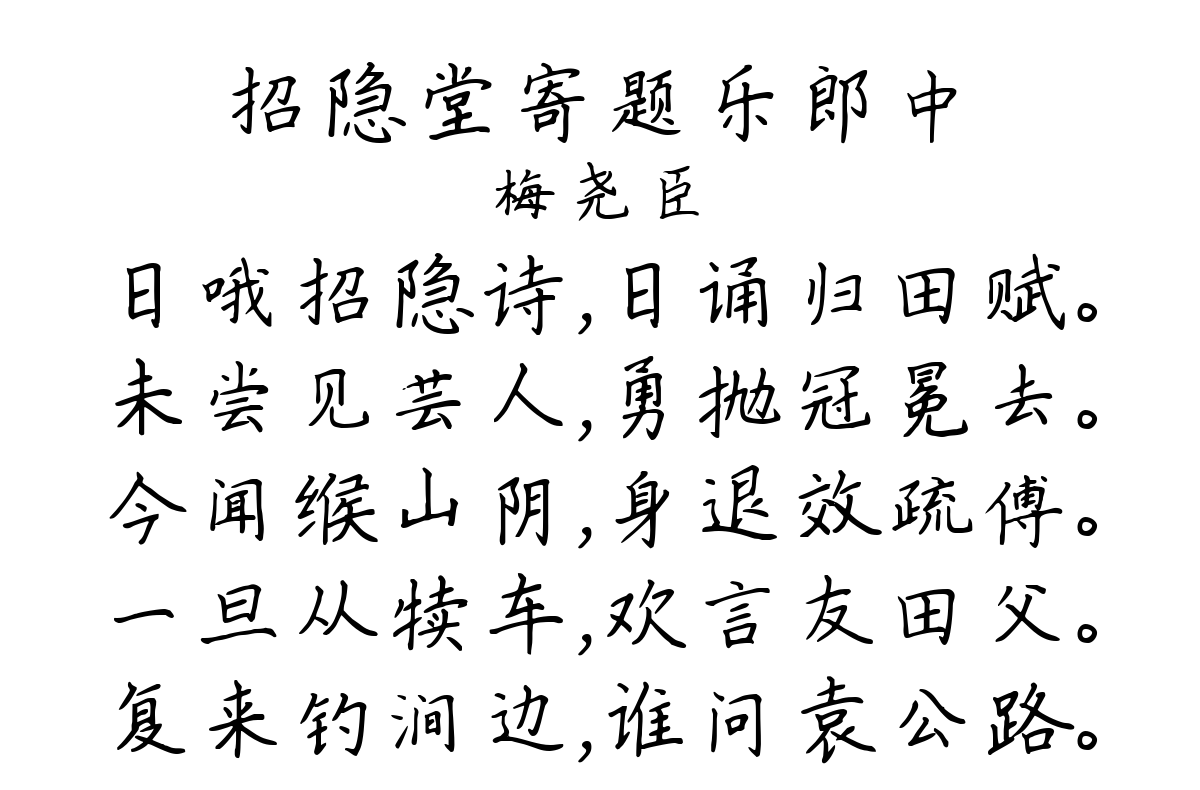 招隐堂寄题乐郎中
梅尧臣
日哦招隐诗,日诵归田赋。
未尝见芸人,勇抛冠冕去。
今闻缑山阴,身退效疏傅。
一旦从犊车,欢言友田父。
复来钓涧边,谁问袁公路。